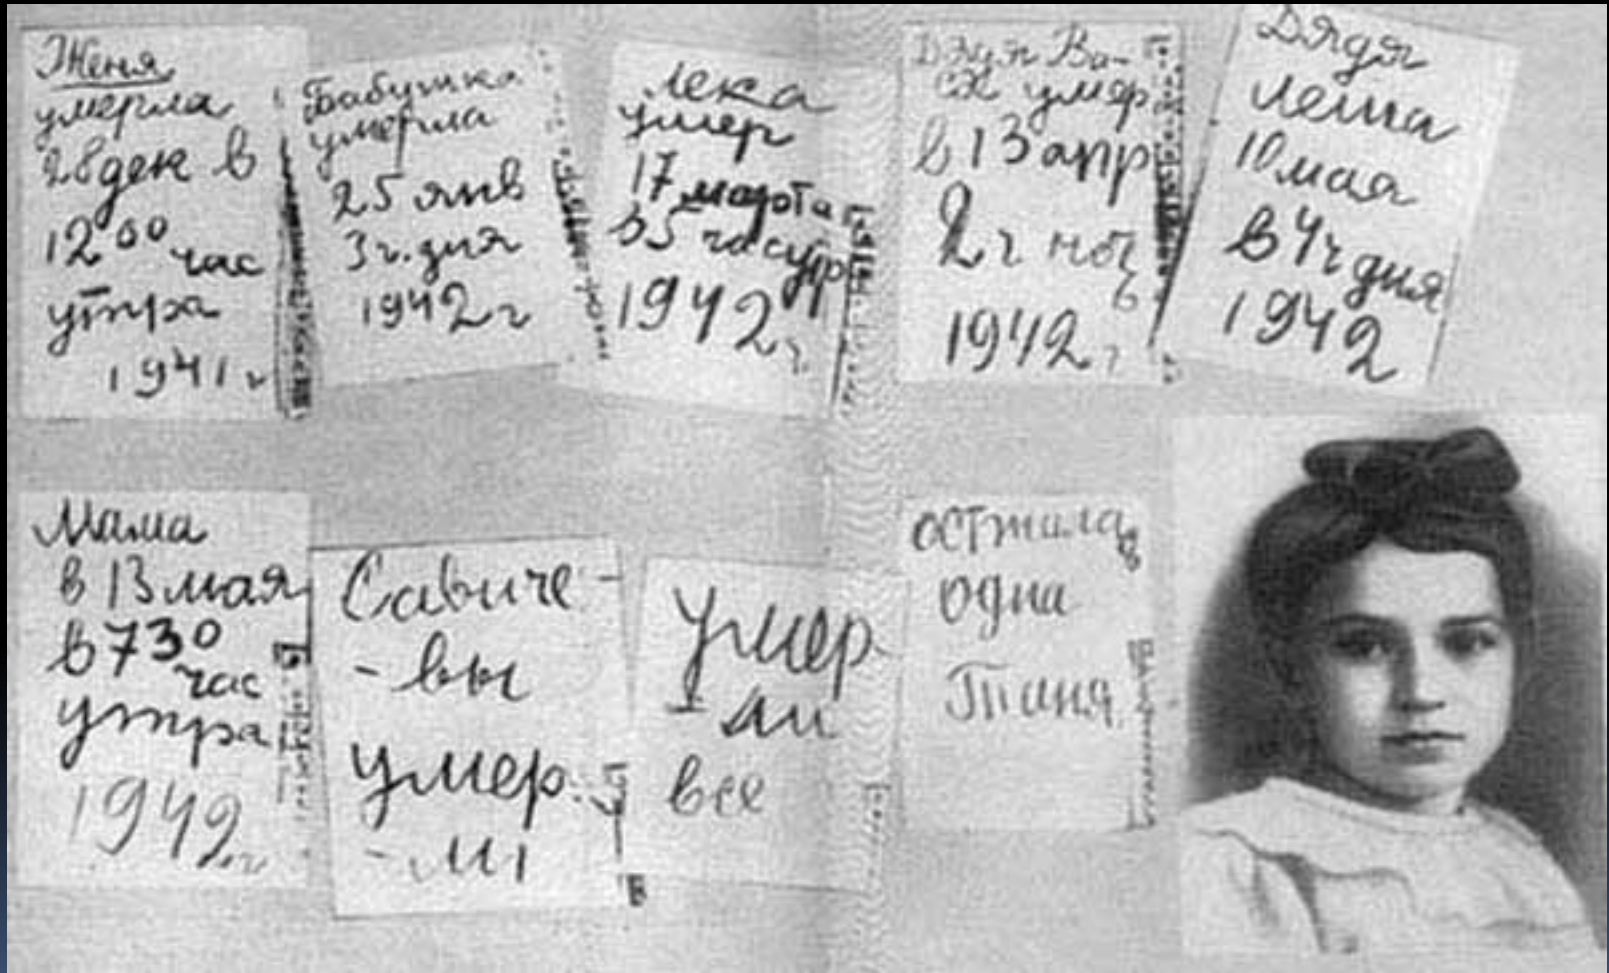 Женя
умерла
28 дек в
12 00 час
утра
1941 г
Бабушка
умерла
25 янв
3 ч. дня
1942 г
Лека
умер
17 марта
в 5 час утр
1942 г.
Дядя Ва-
ся умер
в 13 апр
2 ч ноч
ь
1942 г
Дядя
Леша
10 мая
в 4 ч дня
1942
Мама
в 13 мая
в 7 30
час
утра
1942 г
Савиче-
- вы
умер
- ли
Умер
- ли
все
Осталась
одна
Таня.